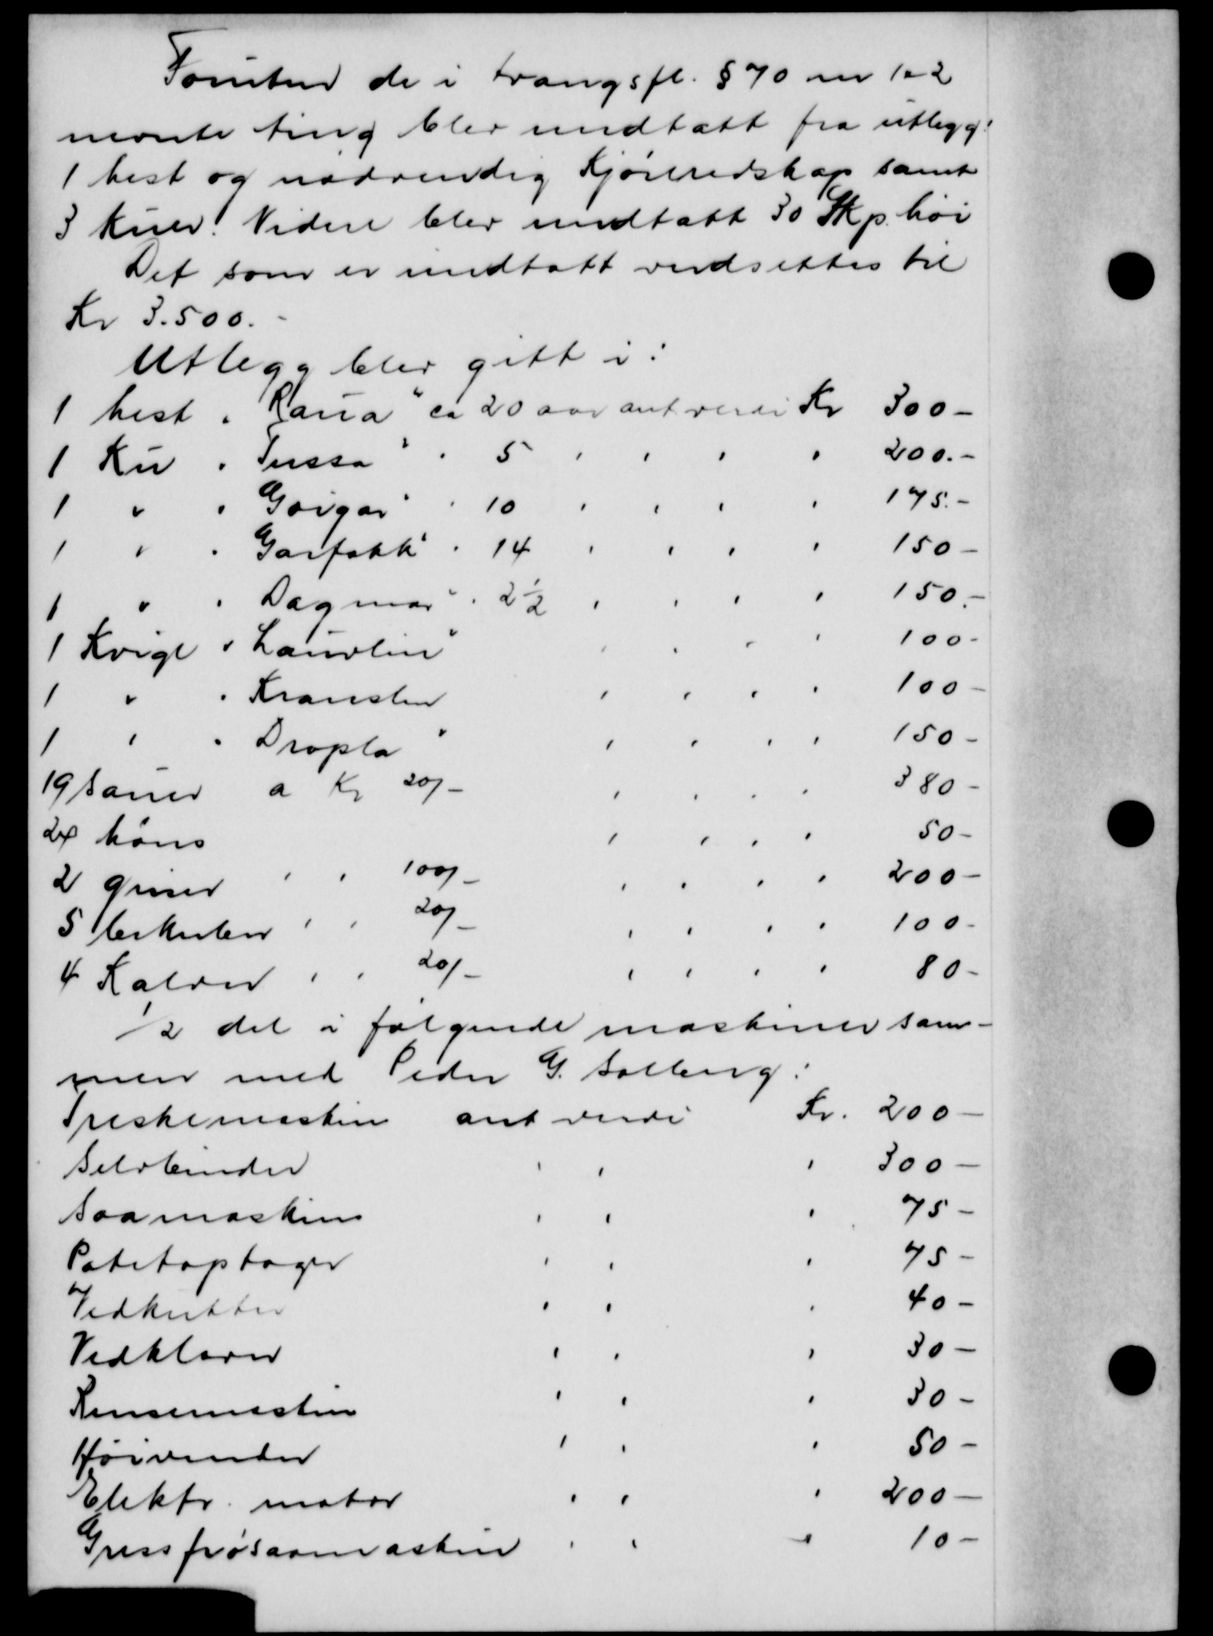 Foruten de i tvangsfl. § 70 nr 1 o 2
nevnte ting blev undtatt fra utlegg:
1 hest og nødvendig kjøreredskap samt
3 kuer. Videre blev undtatt 30 Skp. høi
Det som er undtatt verdsettes til
Kr 3.500.-
Utlegg blev gitt i:
1 hest " Raua " ca 20 aar ant verdi Kr 300-
1 Ku " Tussa " " 5 " " " " 200.-
1 " " Goigar " " 10 " " " " 175.-
1 " " Garfakk " " 14 " " " " 150-
1 " " Dagmar " " 2½ " " " " 150.-
1 Kvige " Lauvlin " " " " " 100-
1 " " Kranslin " " " " 100-
1 " " Dropla " " " " " 150-
19 sauer a Kr 20/- " " " " 380-
24 høns " " " " 50-
2 griser " " 100/- " " " " 200-
5 bikuber " " 20/- " " " " 100-
4 Kalver " " 20/- " " " " 80-
1/2 del i følgende maskiner sam-
men med Peder G. Solberg:
Treskemaskin ant verdi Kr. 200-
Selvbinder " " " 300-
Saamaskin " " " 75-
Potetoptager " " " 75-
Vedkutter " " " 40-
Vedkløver " " " 30-
Rensemaskin " " " 30-
Høivender " " " 50-
Elektr. motor " " " 200-
Gressfrøsaamaskin " " " 10-